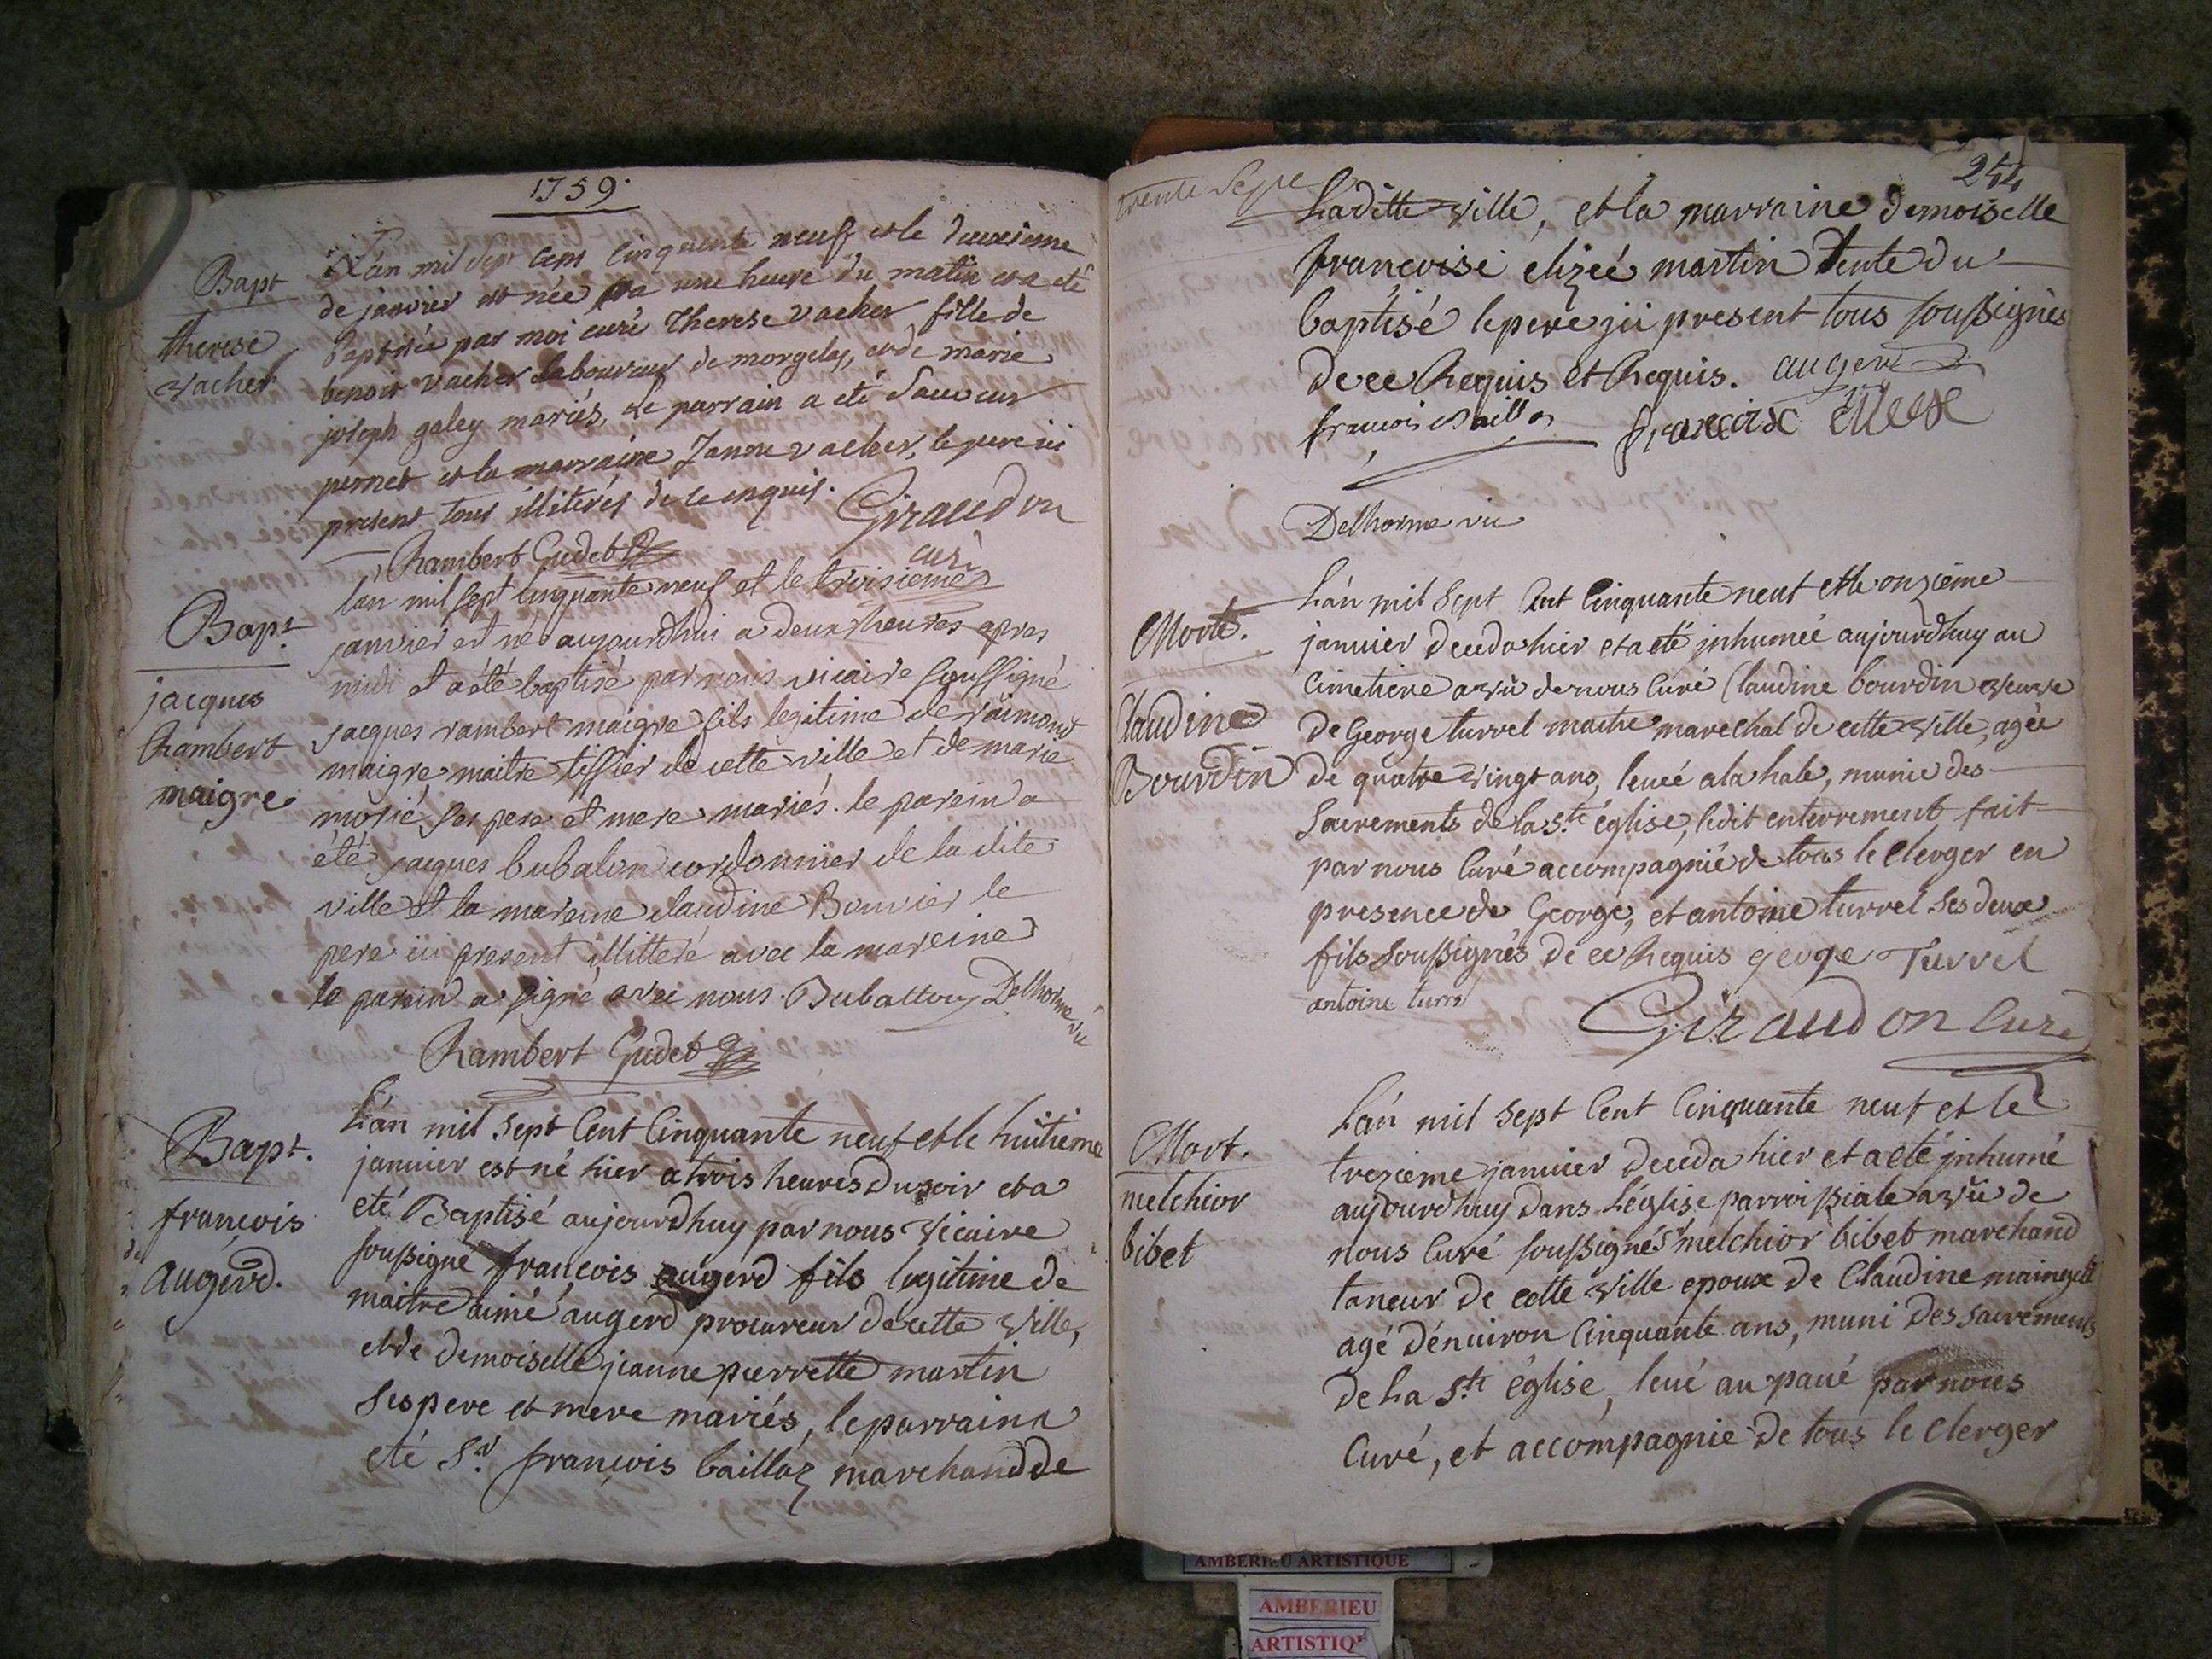 1759.
Bapt
therese
vacher
L'an mil sept cens cinquante neuf et le deuxieme
de janvier est née a une heure du matin et a eté
baptisée par moi curé therese vacher fille de
benoit vacher laboureur de morgelas, et de marie
joseph galey mariés, le parrain a eté
pernet et la marraine Janne vacher, le pere ici
present tous illiterés de ce enquis. Giraudon
curé
Rambert Gudet
Bapt
jacques
Rambert
maigre
lan mil sept cinquante neuf et le troisieme
janvier est né aujourdhui a deux heures apres
midi et a été baptisé par nous vicaire soussigné
jacques rambert maigre fils legitime de raimond
maigre maitre tissier de cette ville et de marie
morié, ses pere et mere mariés. le parein a
été jacques bubalon cordonnier de la dite
ville et la mareine claudine Bouvier le
pere ici present illitteré avec la mareine
le parein a signé avec nous. Bubatton Delhorme vic
Rambert Gudet
Bapt.
francois
augerd.
L'an mil sept Cent Cinquante neuf et le huitieme
janvier est né hier a trois heures du soir et a
eté Baptisé aujourdhuy par nous vicaire
soussigné francois augerd fils legitime de
maitre aimé augerd procureur de cette ville,
et de demoiselle jeanne pierrette martin
ses pere et mere mariés, le parrain a
eté Sr. francois baillaz marchand de
244
trente sept
Laditte ville, et la marraine demoiselle
francoise elizeé martin tente du
baptisé le pere jci present tous soussignés
de ce Requis et Requis. augerd
francois Baillaz francoise
Delhorme vic
Mort.
Claudine
Bourdin
L'an mil sept Cent Cinquante neuf et le onzieme
janvier deceda hier et a eté jnhumeé aujourdhuy au
Cimetiere a vû de nous Curé Claudine bourdin veuve
de George turrel maitre marechal de cette ville, agée
de quatre vingt ans, leveé a la hale, munie des
Sacrements de la Ste. église, ledit enterrement fait
par nous Curé accompagnié de tous le Clerger en
presence de George, et antoine turrel ses deux
fils soussignés de ce Requis george Turrel
antoine turrel
Giraudon Curé
Mort.
melchior
bibet
L'an mil sept Cent Cinquante neuf et le
trezieme janvier deceda hier et a eté jnhumé
aujourdhuy dans L'église parroissiale a vû de
nous Curé soussigné Sr melchior bibet marchand
taneur de cette ville epoux de Claudine
agé d'environ Cinquante ans, muni des sacrements
de La Ste église, levé au pavé par nous
Curé, et accompagnie de tous le Clerger
AMBERIEU ARTISTIQUE
AMBERIEU
ARTISTIQ